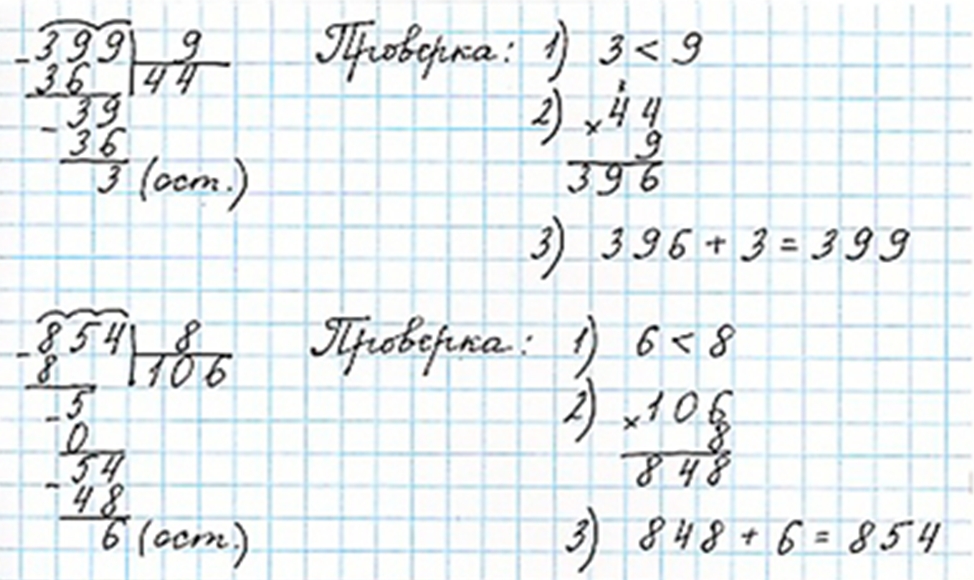 - 399 | 9
36 | 44
- 39
36
3 (ост.)
Проверка: 1) 3 < 9
2) × 44
9
396
3) 396 + 3 = 399
- 854 | 8
8 | 106
- 5
0
- 54
48
6 (ост.)
Проверка: 1) 6 < 8
2) × 106
8
848
3) 848 + 6 = 854